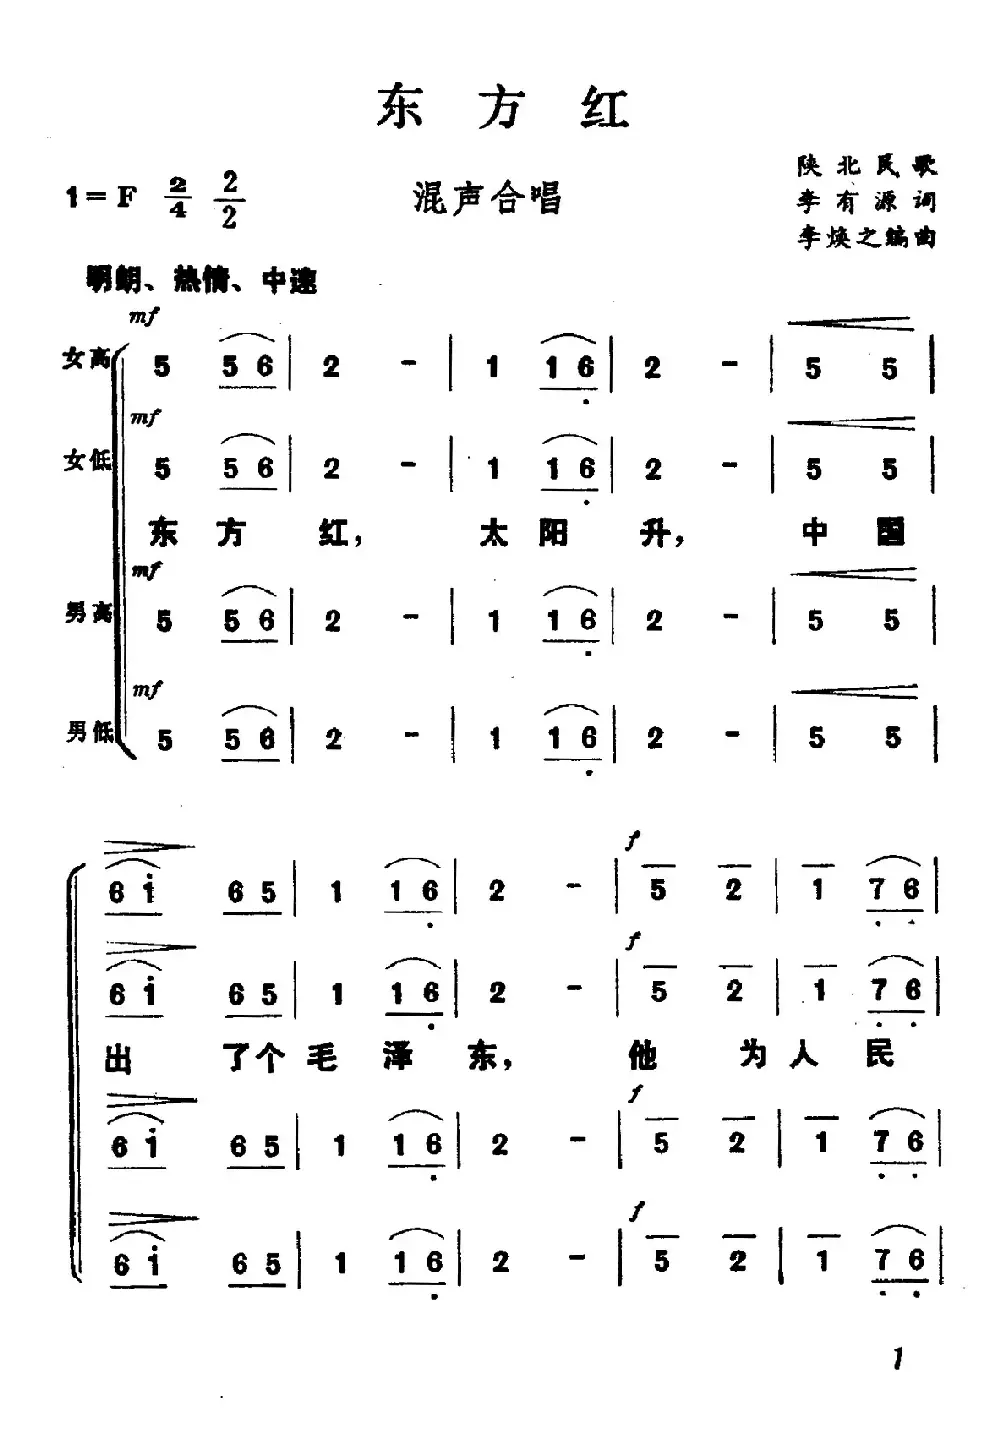 东方红
1=F 2/4 2/2
混声合唱
陕北民歌
李有源词
李焕之编曲
明朗、热情、中速
mf
女高 5 5 6 | 2 - | 1 1 6̣ | 2 - | 5 5 |
mf
女低 5 5 6 | 2 - | 1 1 6̣ | 2 - | 5 5 |
东方红，太阳升，中国
mf
男高 5 5 6 | 2 - | 1 1 6̣ | 2 - | 5 5 |
mf
男低 5 5 6 | 2 - | 1 1 6̣ | 2 - | 5 5 |
f
6 1̇ 6 5 | 1 1 6̣ | 2 - | 5 2 | 1 7̣ 6̣ |
f
6 1̇ 6 5 | 1 1 6̣ | 2 - | 5 2 | 1 7̣ 6̣ |
出了个毛泽东，他为人民
f
6 1̇ 6 5 | 1 1 6̣ | 2 - | 5 2 | 1 7̣ 6̣ |
f
6 1̇ 6 5 | 1 1 6̣ | 2 - | 5 2 | 1 7̣ 6̣ |
1